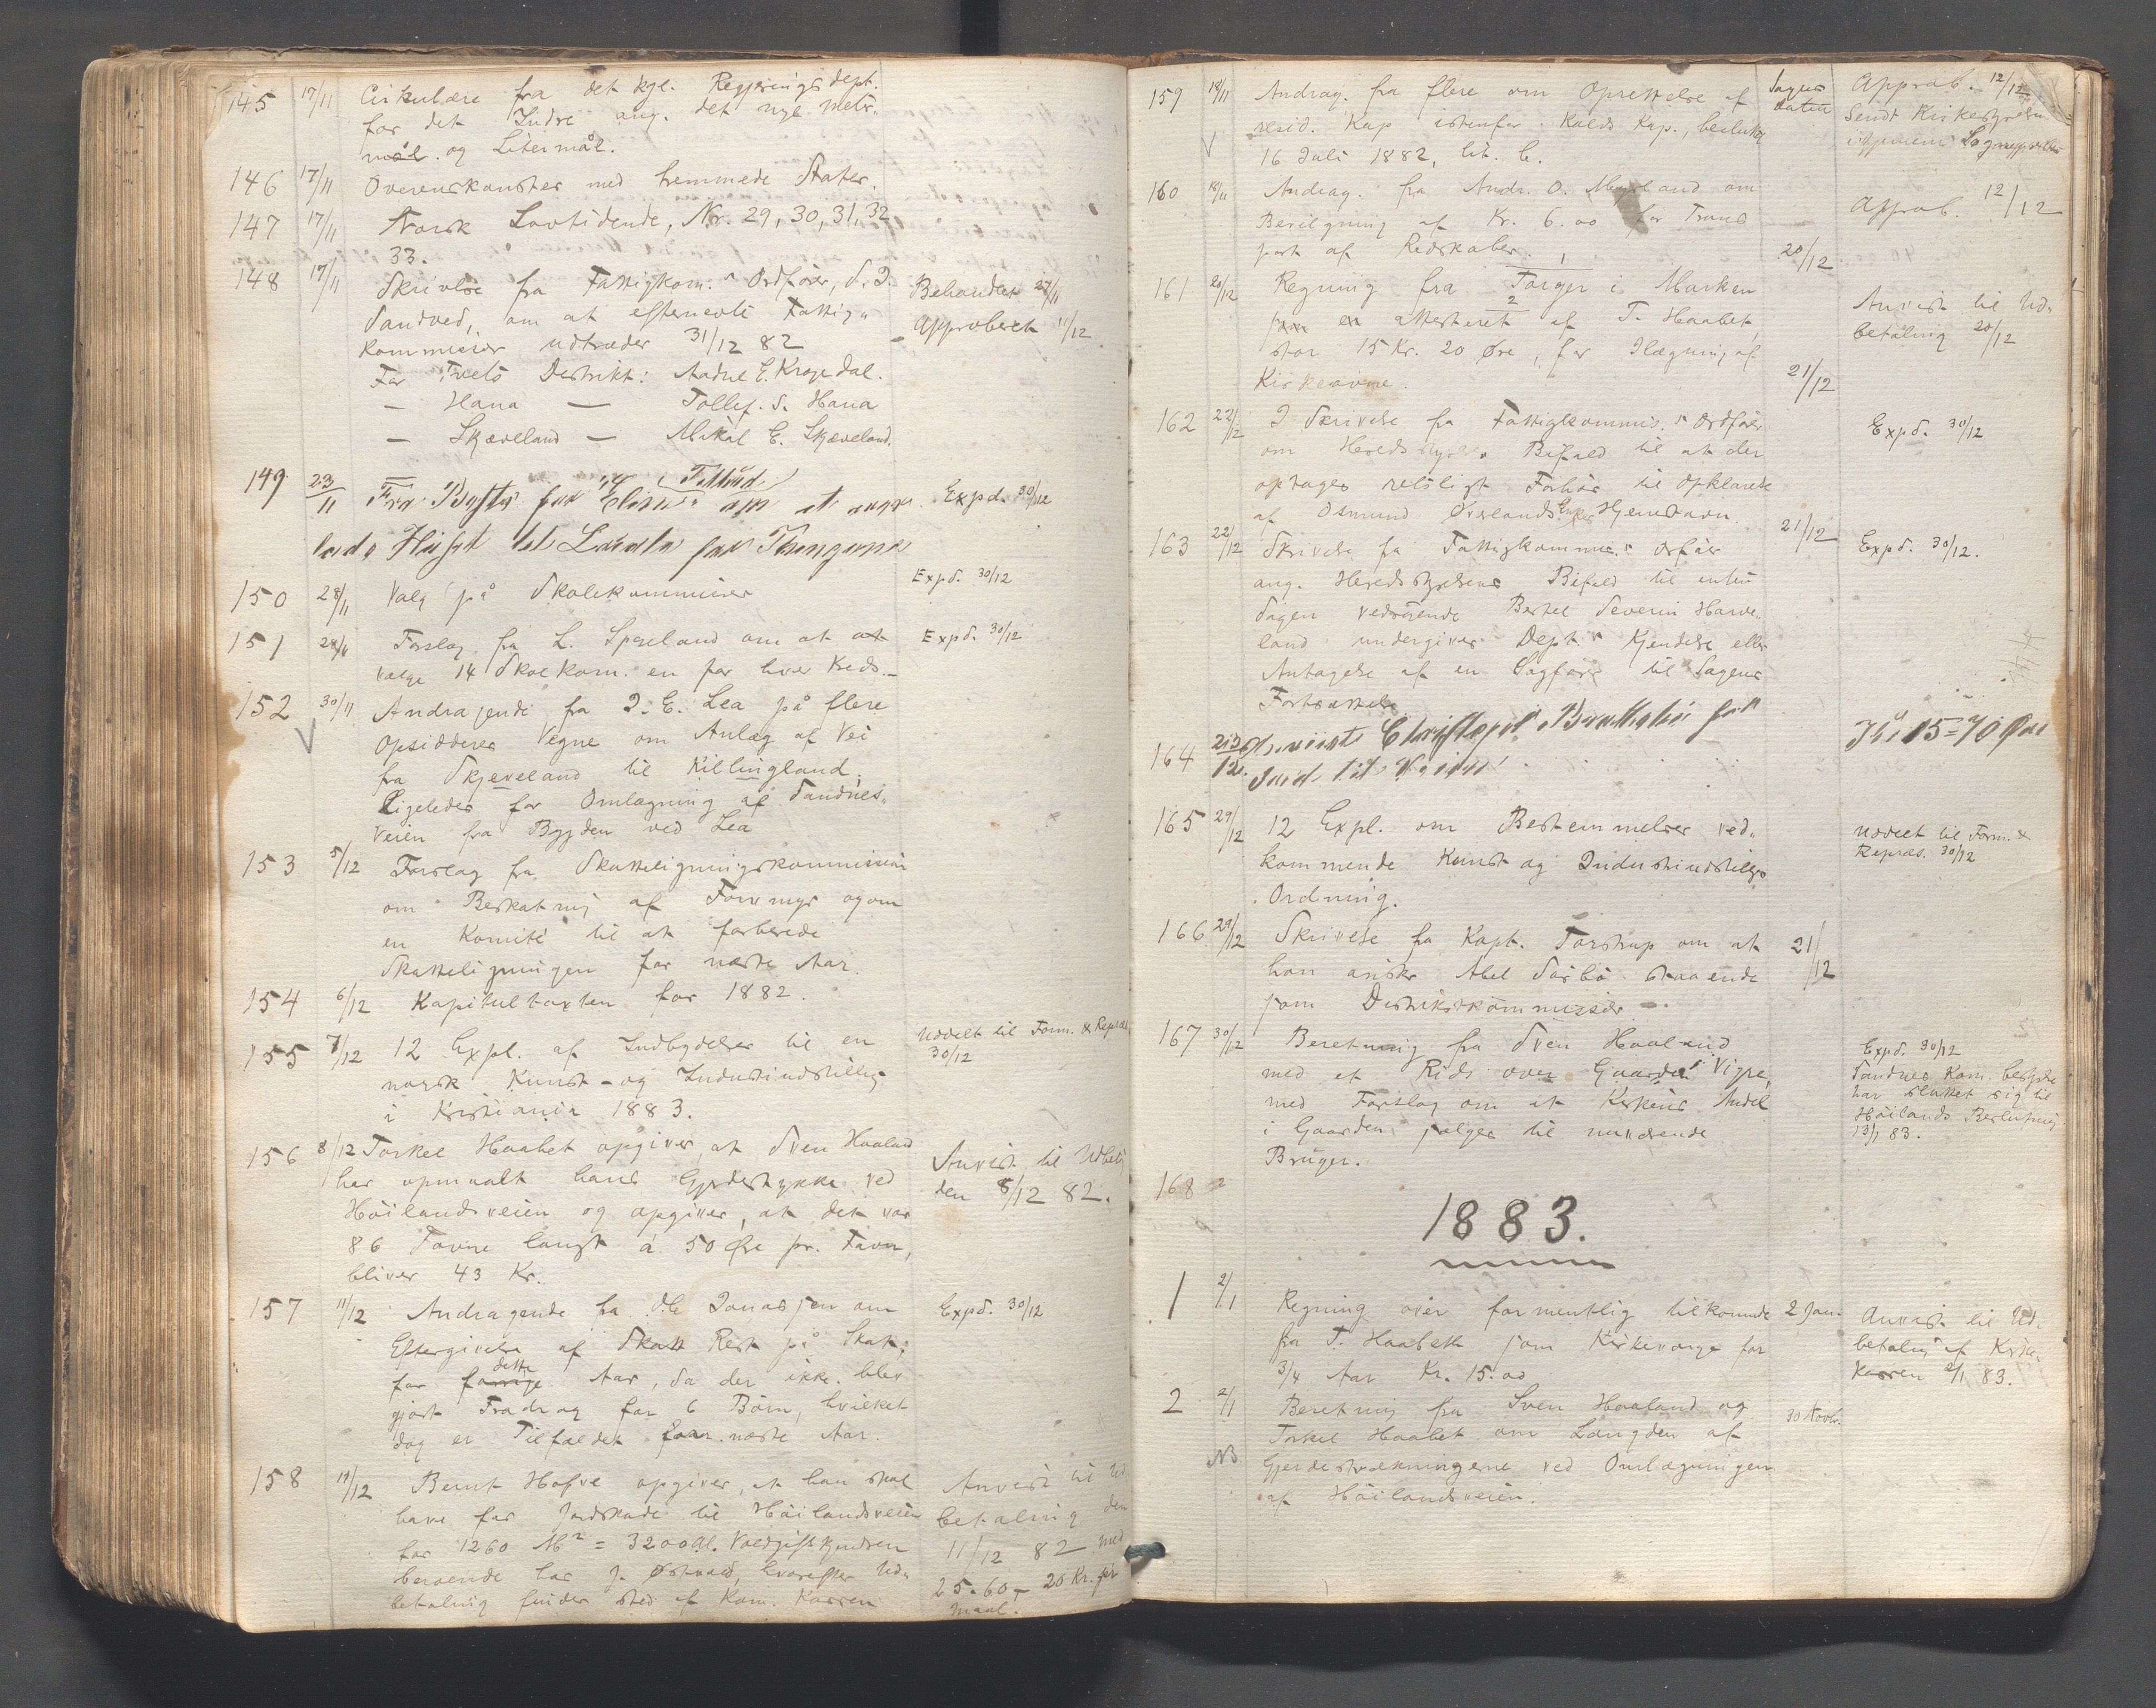 145 17/11 Cirkulære fra det kgl. Regjerings dept.
for det Indre ang. det nye Metr.
mål. og Litermål.
146 17/11 Overenskomster med fremmede Stater.
147 17/11 Norsk Lovtidende, Nr. 29, 30, 31, 32
33.
148 17/11 Skrivelse fra Fattigkom.s Ordfører, S. J. Behandlet 27/11
Sandved, om at efternevnte Fattig- Approberet 11/12
kommissær udtræder 31/12 82
For Tvets Destrikt: Aadne E. Krogedal.
— Hana — Tollef. S. Hana
— Skjæveland — Mikal E. Skjæveland.
149 23/11 Fra om at Expd. 30/12
lade Huset til Lokale for
150 28/11 Valg på Skolekommissær Expd. 30/12
151 28/11 Forslag fra L. Speeland om at at Expd. 30/12
valge 14 Skolkom. en for hver Kreds.
152 30/11 Andragende fra J. E. Lea på flere
Opsidderes Vegne om Anlæg af Vei
fra Skjeveland til Killingland;
Ligeledes for Omlægning af Sandnes-
veien fra Bygden ved Lea
153 5/12 Forslag fra Skatteligningskommissionen
om Beskatning af Formyr og om
en Komité til at forberede
Skatteligningen for næste Aar.
154 6/12 Kapiteltaxten for 1882.
155 7/12 12 Expl. af Indbydelser til en Uddelt til Form. & Repræs.
norsk Kunst- og Industriudstilling 30/12
i Kristiania 1883.
156 8/12 Torkel Haabet opgiver, at Sven Haaland Anvist til Udbet.
har opmaalt hans Gjerdestykke ved den 8/12 82.
Høilandsveien og opgiver, at det var
86 Favne langt á 50 Øre pr. Favn,
bliver 43 Kr.
157 11/12 Andragende fra Jonassen om Expd. 30/12
Eftergivelse af Skatt Rest på Skat;
for forrige dette Aar, da der ikke blev
gjort Fradrag for 6 Børn, hvilket
dog er Tilfældet for næste Aar.
158 11/12 Bernt Hofve opgiver, at han skal Anvist til Ud
have for Jordskade til Høilandsveien betaling den
for 1260 M² = 3200 Al. Voldgiftskjendsen 11/12 82 med
beroende hos J. Østraad, hvorefter Ud- 25.60 - 20 Kr. pr
betaling finder sted af Kom. Kassen Maal.
159 18/11 Andrag. fra flere om Oprettelse af Approb. 12/12
resid. Kap istenfor Kalds Kap., beslutte Sendt Kirkestyrelsen
16 Juli 1882, lit. C.
160 18/11 Andrag. fra Andr. O. om Approb. 12/12
Bevilgning af Kr. 6.00 for Trans
port af Redskaber. 20/12
161 20/12 Regning fra Torger i Marken Anvist til Ud-
attesteret af T. Haabet, betaling 20/12
stor 15 Kr. 20 Øre, for Ilægning af
Kirkeovne. 21/12
162 22/12 I Skrivelse fra Fattigkommis.s Ordfører Expd. 30/12
om Heredsstyrels. Bifald til at der
optages retsligt Forhør til Opklarelse
af Osmund Øverlands Enkes Hjemstavn. 21/12
163 22/12 Skrivelse fra Fattigkommis.s Orfører Expd. 30/12.
ang. Heredsstyrelsens Bifald til enten
Sagen vedrørende Bertel Severin Harve-
land undergives Dept.s Kjendelse eller
Antagelse af en Sagfører til Sagens
Fortsættelse
164 23/12 Kr 15=70 Øre
165 29/12 12 Expl. om Bestemmelser ved- Uddelt til Form. &
kommende Kunst og Industriudstillings Repræs. 30/12
Ordning.
166 29/12 Skrivelse fra Kapt. Torstrup om at 21/12
han ansker Abel Sørbö staaende
som Destriktkommissær.
167 30/12 Beretning fra Sven Haaland Expd. 30/12
med et Rids over Gaarden Vigre, Sandnes Kom. bestyrelse
med Forslag om at Kirkens Andel har sluttet sig til
i Gaarden sælges til nuværende Høilands Beslutning
Bruger. 13/1 83.
168
1883.
1 2/1 Regning over formentlig tilkommende 2 Jan. Anvist til Ud-
fra T. Haabeth som Kirkeværge for betaling af Kirke-
3/4 Aar Kr. 15.00 kassen 2/1 83.
2 2/1 Beretning fra Sven Haaland og 30 Novbr.
Torkel Haabet om Længden af
NB. Gjerdestrækningerne ved Omlægningen
af Høilandsveien.